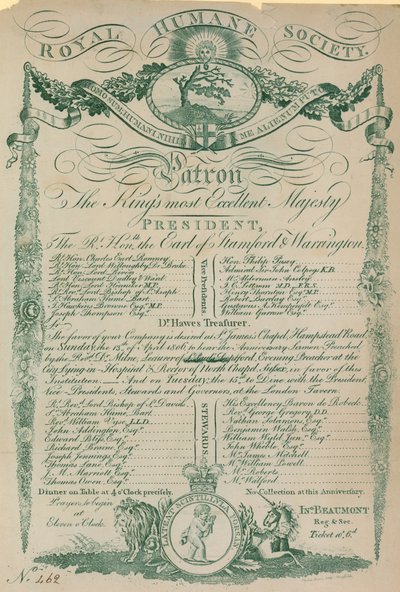 ROYAL HUMANE SOCIETY.
HOMO SUM HUMANI NIHIL A ME ALIENUM PUTO
Patron
The King's most Excellent Majesty
PRESIDENT,
The Rt. Honble. the Earl of Stamford & Warrington.
Vice Presidents
Rt. Hon. Charles Earl Romney
Rt. Hon. Lord Willoughby de Broke
Rt. Hon. Lord Rivers
Lord Viscount Dudley & Ward
Rt. Hon. Lord Henniker M.P.
Rt. Revd. Lord Bishop of St. Asaph
Sr. Abraham Hume Bart.
I. Hawkins Browne Esqr. M.P.
Joseph Thompson Esqr.
Hon. Philip Pusey
Admiral Sir John Colpoys K.B.
Mr. Alderman Ansley
J. C. Lettsom M.D. F.R.S.
Henry Thornton Esqr. M.P.
Robert Barclay Esqr.
Gustavus A. Kempenfelt Esqr.
William Garrow Esqr.
Dr. Hawes Treasurer.
The favor of your Company is desired at St. James's Chapel, Hampstead Road
on Sunday, the 13th of April 1806, to hear the Anniversary Sermon Preached
by the Revd. Dr. Milne, Lecturer of Deptford, Evening Preacher at the
City Lying-in Hospital & Rector of North Chapel, Sussex, in favor of this
Institution. And on Tuesday, the 15th. to Dine with the President
Vice-Presidents, Stewards and Governors, at the London Tavern
STEWARDS.
Rt. Revd. Lord Bishop of St. Davids
Sr. Abraham Hume, Bart.
Revd. William Vyse, L.L.D.
John Addington, Esqr.
Edward Bliss, Esqr.
Richard Bowne Esqr.
Joseph Jennings, Esqr.
Thomas Lane, Esqr.
F. M. Marriott, Esqr.
Thomas Owen, Esqr.
His Excellency Baron de Robeck
Revd. George Gregory, D.D.
Nathan Salomons, Esqr.
Benjamin Walsh, Esqr.
William Wybd Junr. Esqr.
John Whittle Esqr.
Mr. James Mitchell
Mr. William Powell
Mr. Roberts
Mr. Walford
Dinner on Table at 4 o'Clock precisely.
No Collection at this Anniversary.
Prayers to begin
at
Eleven o'Clock.
LATEAT SCINTILLULA FORSAN
Ino. BEAUMONT
Reg. & Sec.
Ticket 10s. 6d.
No. 462